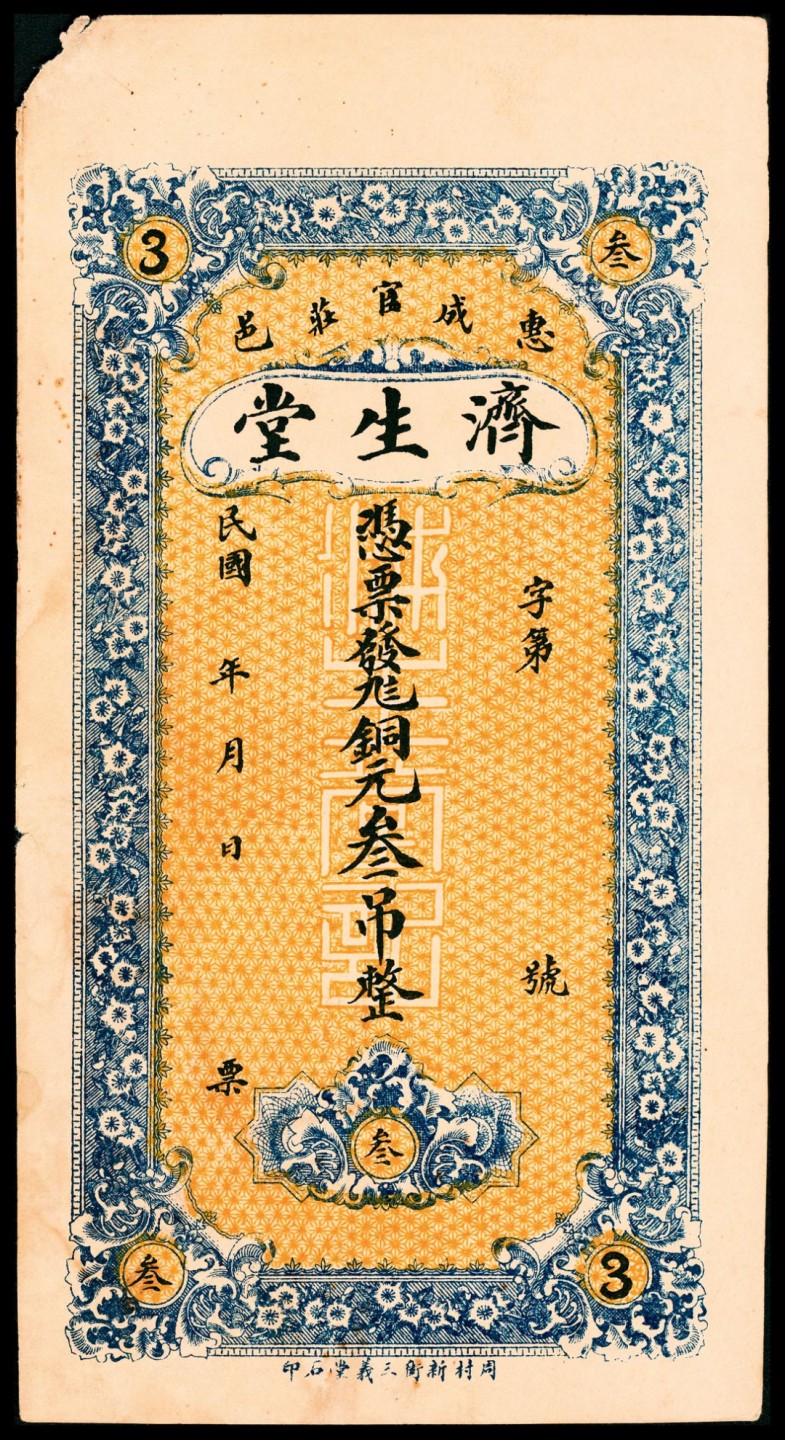 3
叁
惠成官莊邑
濟生堂
字第 號
憑票發兌銅元叁吊整
民國 年 月 日 票
叁
叁
3
周村新街三義堂石印